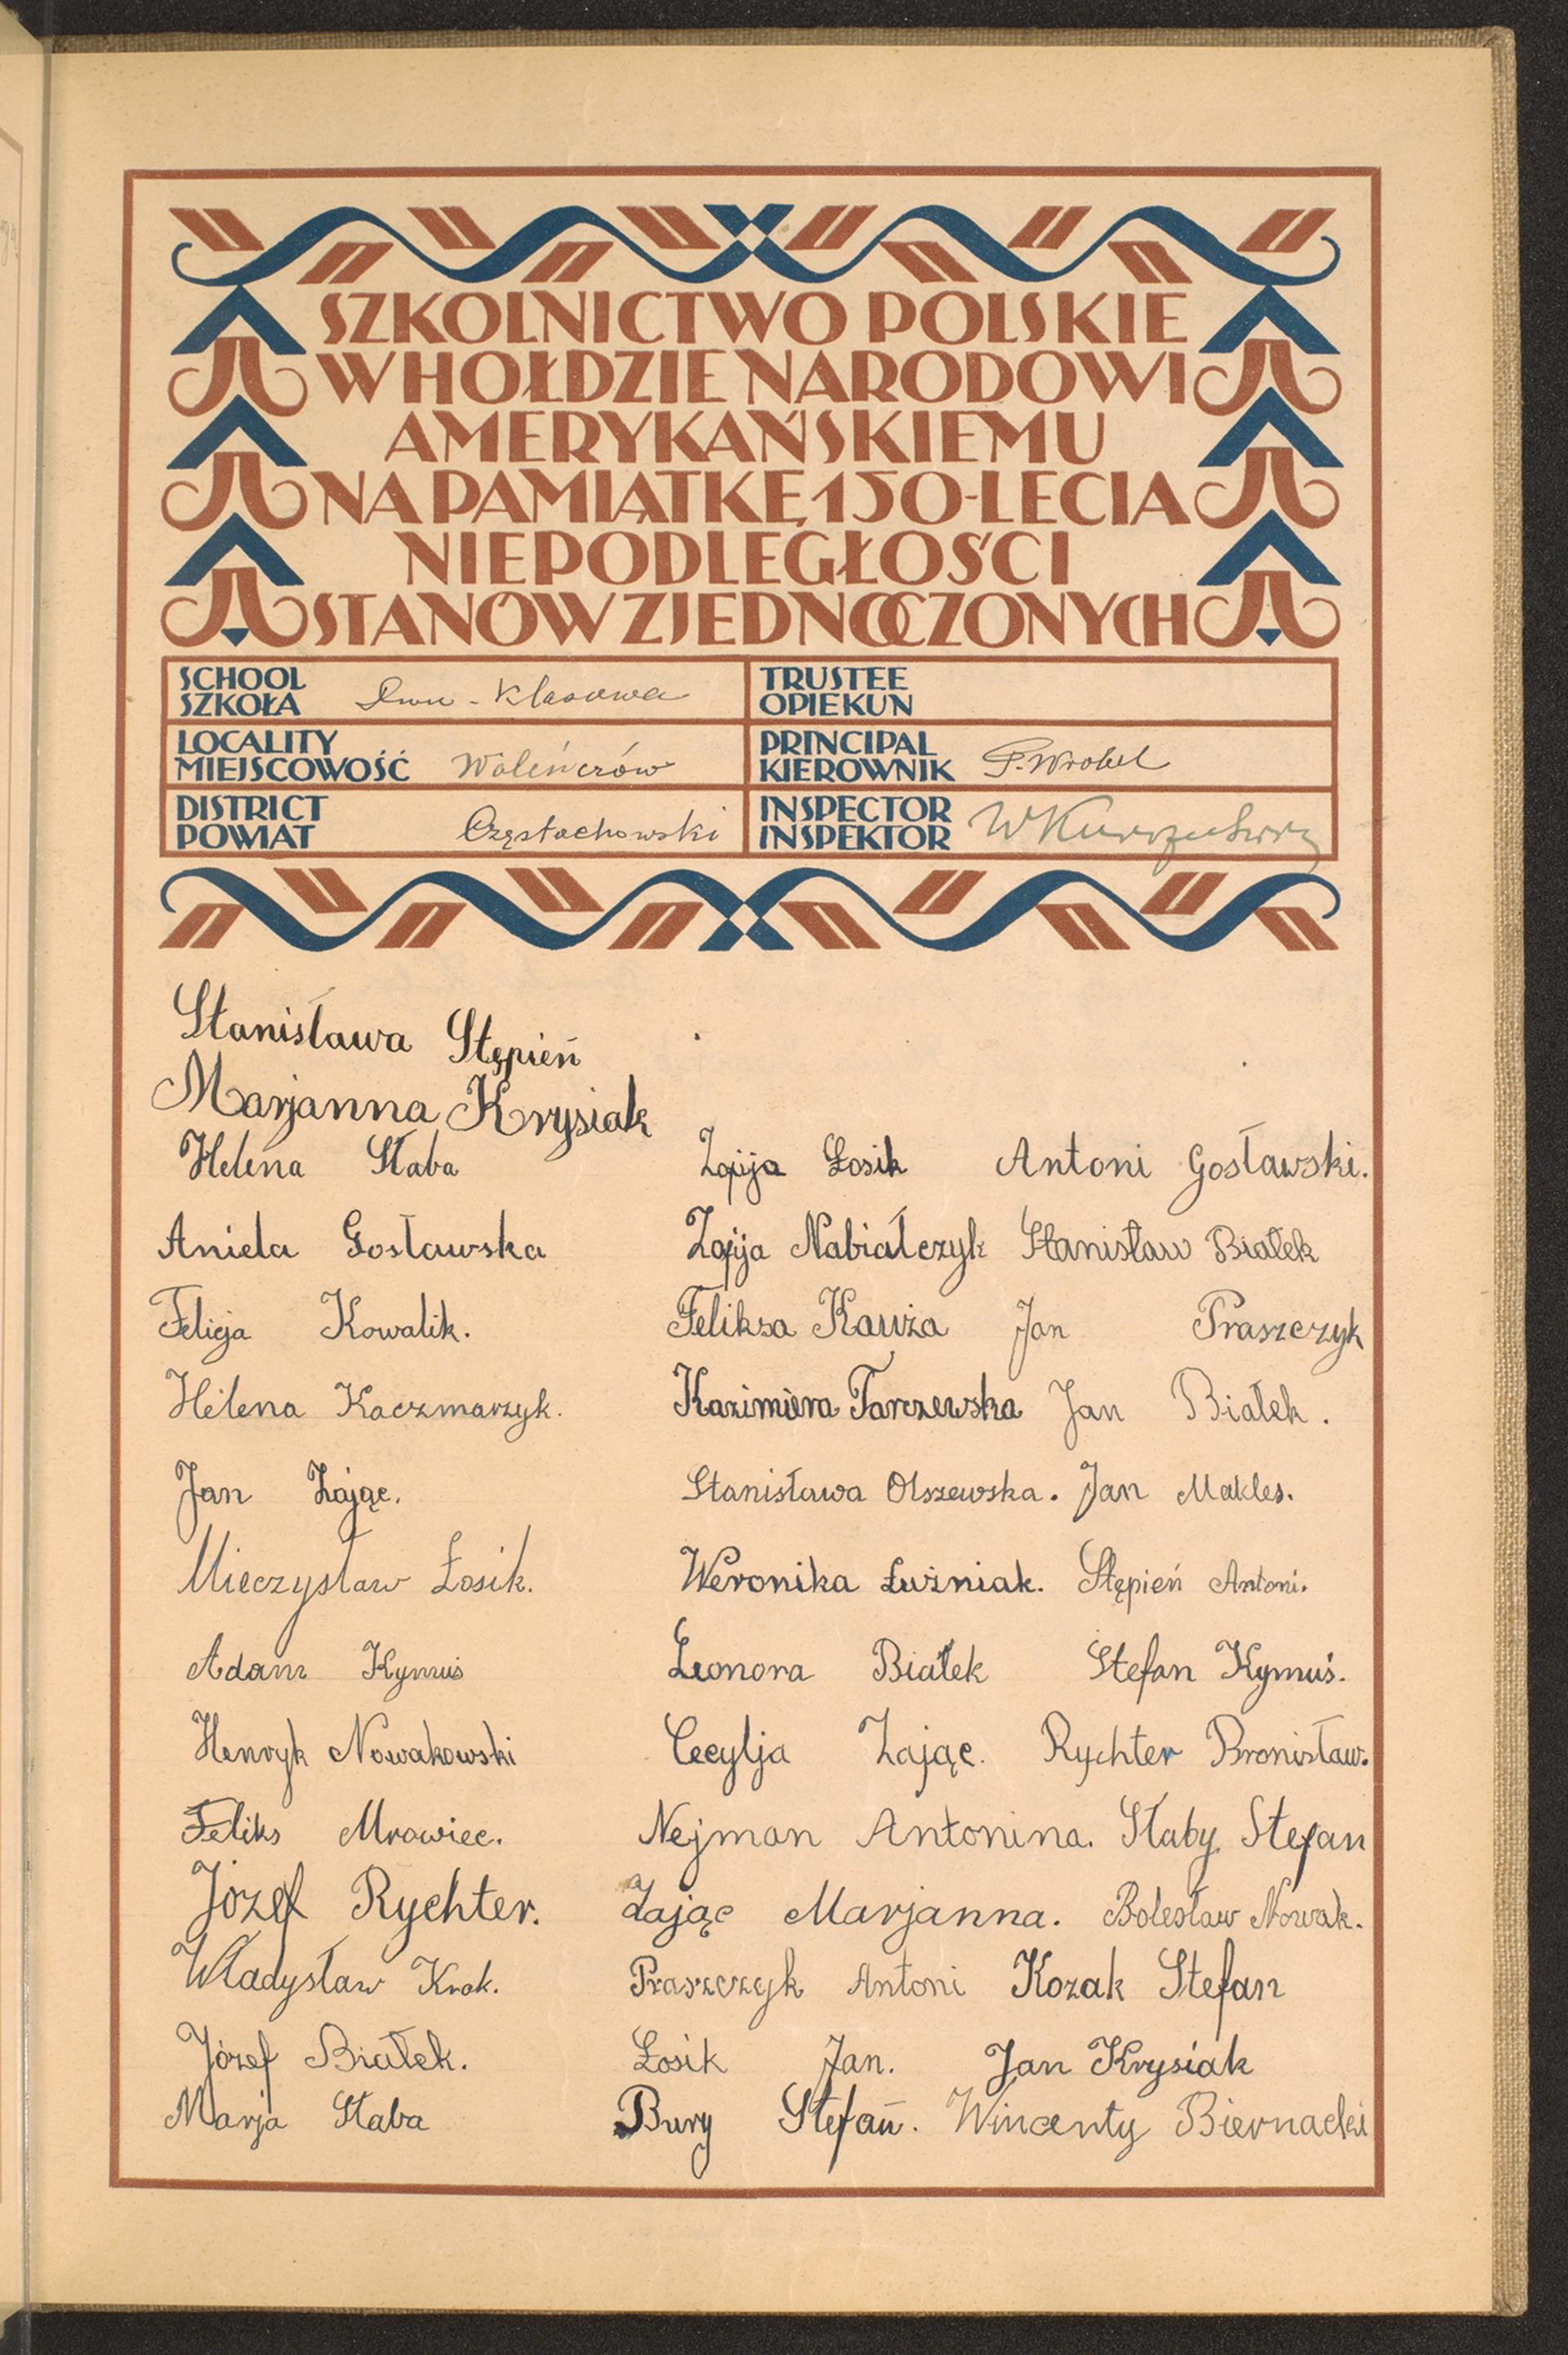 SZKOLNICTWO POLSKIE
W HOŁDZIE NARODOWI
AMERYKAŃSKIEMU
NA PAMIĄTKĘ 150-LECIA
NIEPODLEGŁOŚCI
STANÓW ZJEDNOCZONYCH
SCHOOL
SZKOŁA Dwu-klasowa
TRUSTEE
OPIEKUN
LOCALITY
MIEJSCOWOŚĆ Waleńczów
PRINCIPAL
KIEROWNIK P. Wrobel
DISTRICT
POWIAT Częstochowski
INSPECTOR
INSPEKTOR
Stanisława Stępień
Marjanna Krysiak
Helena Słaba Zofija Łosik Antoni Gosławski.
Aniela Gosławska Zofija Nabiałczyk Stanisław Białek
Felicja Kowalik. Feliksa Kauża Jan Praszczyk
Helena Kaczmarzyk. Kazimiera Tarczewska Jan Białek.
Jan Zając. Stanisława Olszewska. Jan Makles.
Mieczysław Łosik. Weronika Łuźniak. Stępień Antoni.
Adam Kymuś Leonora Białek Stefan Kymuś.
Henryk Nowakowski Cecylja Zając. Rychter Bronisław.
Feliks Mrowiec. Nejman Antonina. Słaby Stefan
Józef Rychter. Zając Marjanna. Bolesław Nowak.
Władysław Krok. Praszczyk Antoni Kozak Stefan
Józef Białek. Łosik Jan. Jan Krysiak
Marja Słaba Bury Stefan. Wincenty Biernacki